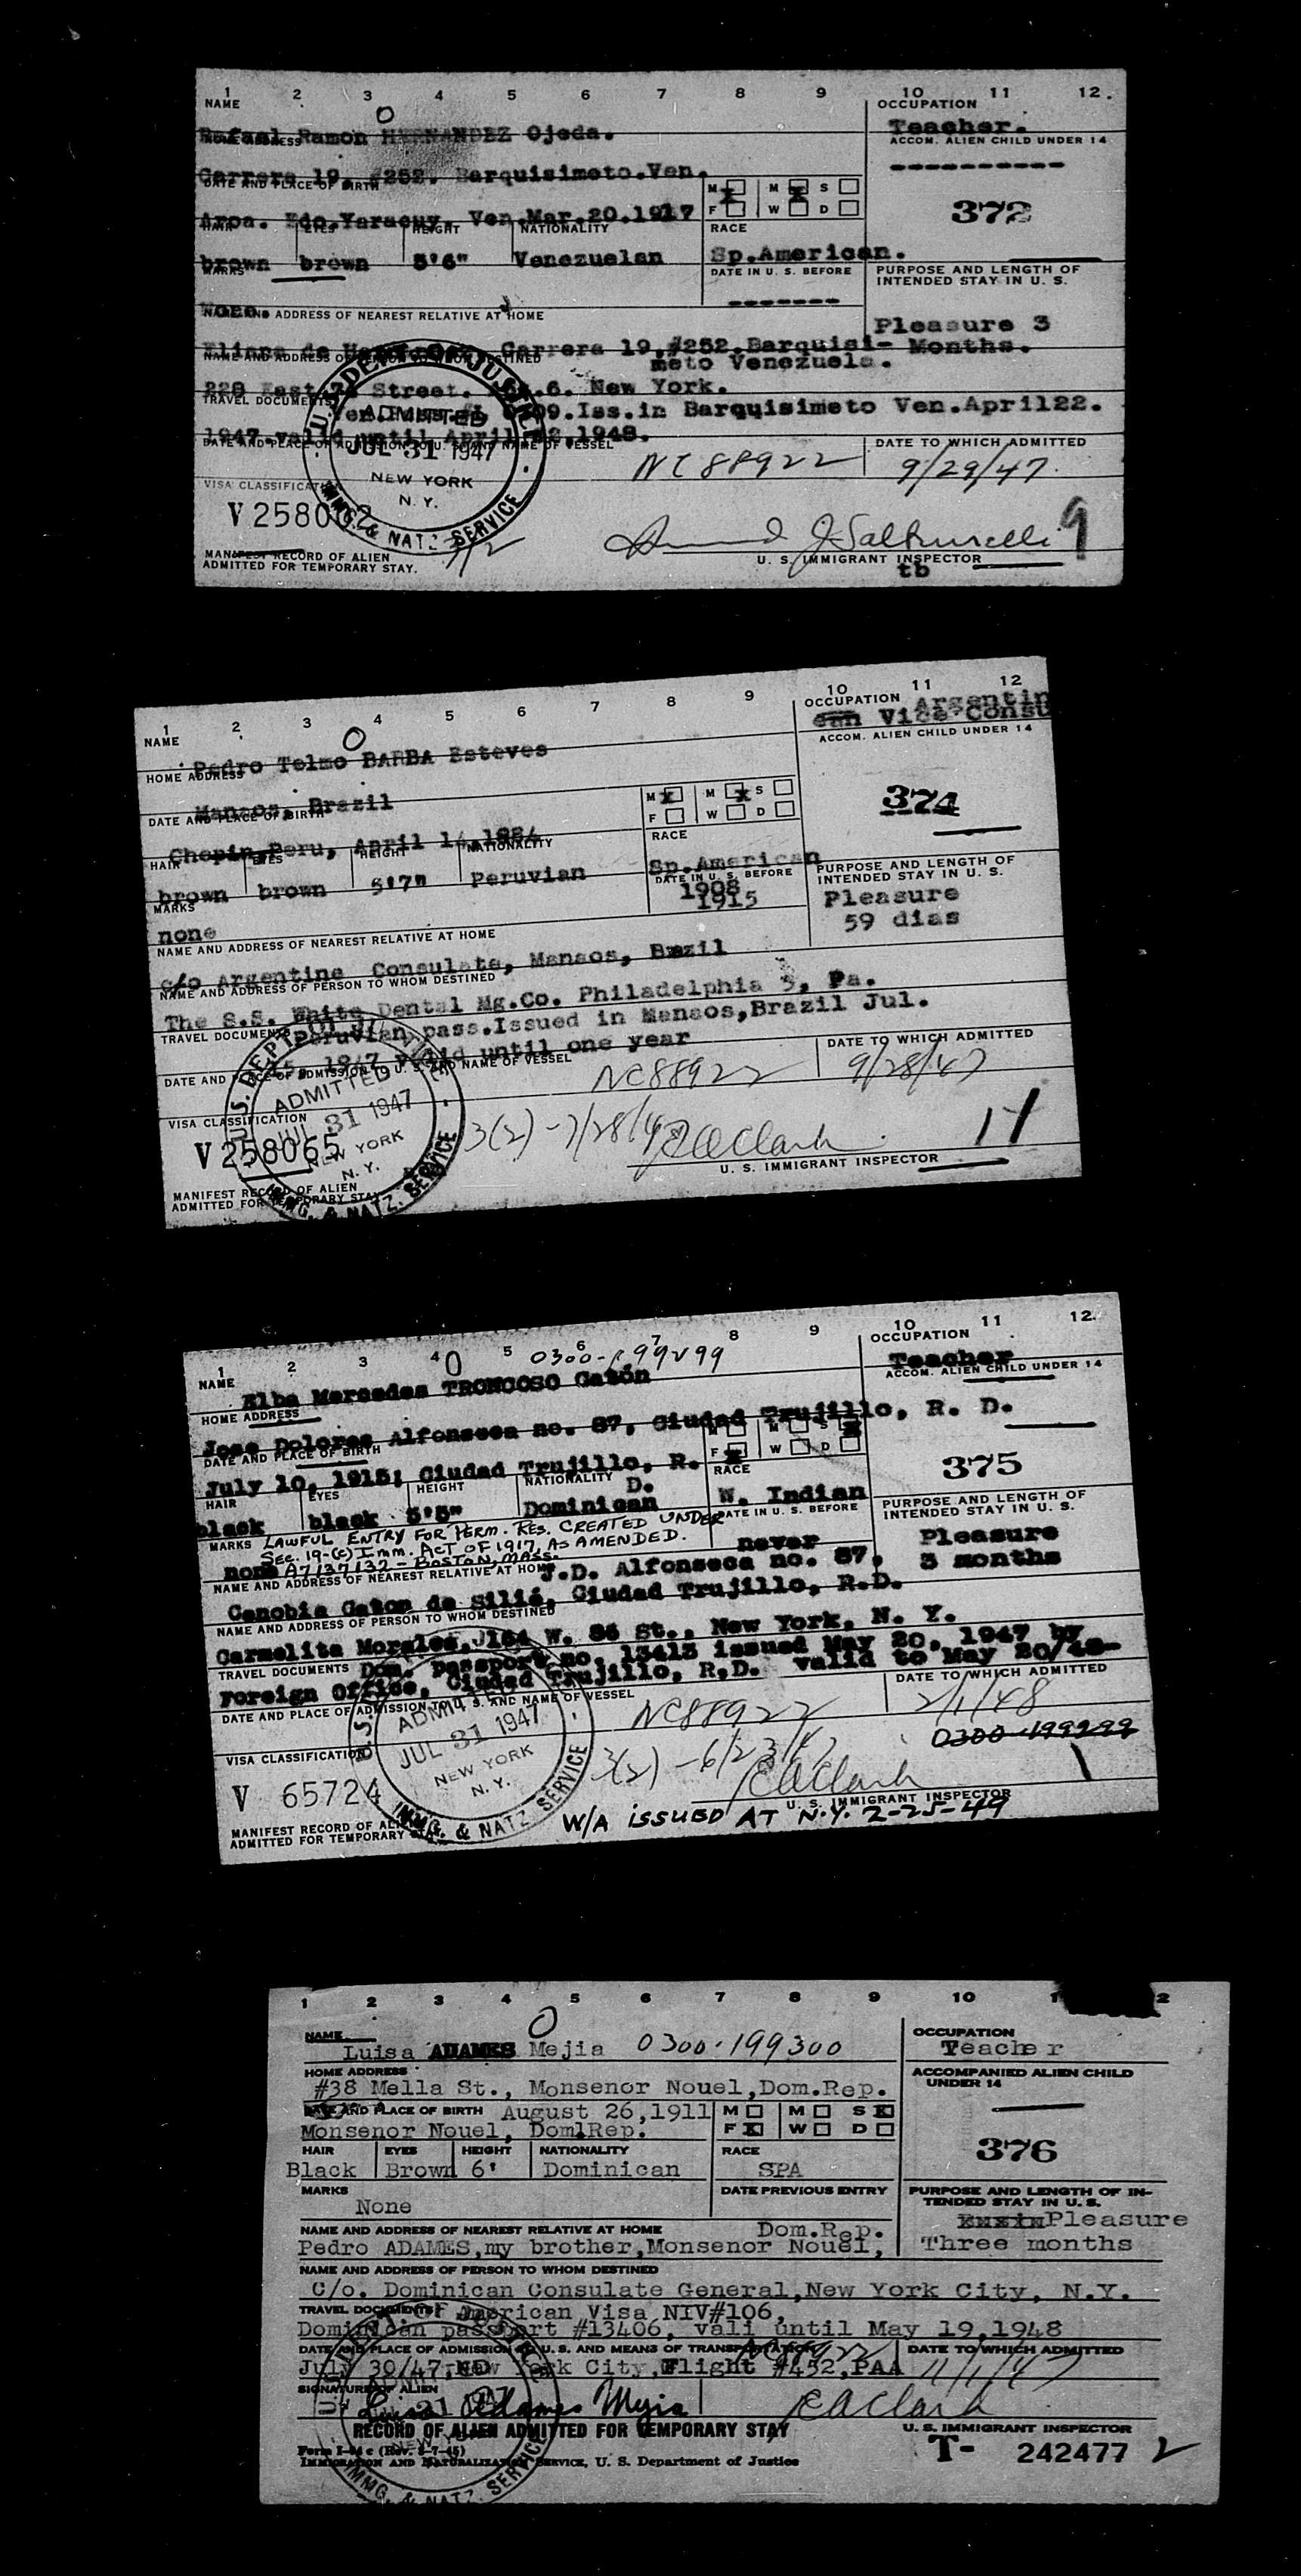 1 2 3 4 5 6 7 8 9 10 11 12
NAME
OCCUPATION
Rafael Ramon HERNANDEZ Ojeda.
Teacher.
HOME ADDRESS
ACCOM. ALIEN CHILD UNDER 14
Carrera 19. #252. Barquisimeto.Ven.
----------
DATE AND PLACE OF BIRTH
M X M X S
Aroa. Edo.Yaracuy. Ven.Mar.20.1917
F W D
372
HAIR EYES HEIGHT NATIONALITY RACE
brown brown 5'6" Venezuelan Sp.American.
MARKS
DATE IN U. S. BEFORE
PURPOSE AND LENGTH OF
INTENDED STAY IN U. S.
None.
-------
NAME AND ADDRESS OF NEAREST RELATIVE AT HOME
Pleasure 3
Carrera 19.#252.Barquisi- Months.
meto Venezuela.
NAME AND ADDRESS OF PERSON TO WHOM DESTINED
Street. New York.
TRAVEL DOCUMENTS
Iss.in Barquisimeto Ven.April22.
1947.valid until April 22.1948.
DATE AND PLACE OF ADMISSION TO U. S. AND NAME OF VESSEL
DATE TO WHICH ADMITTED
NC88922
9/29/47.
U. S. DEPT. OF JUSTICE
ADMITTED
JUL 31 1947
NEW YORK
N. Y.
IMMG. & NATZ. SERVICE
VISA CLASSIFICATION
V 258062
9
MANIFEST RECORD OF ALIEN
ADMITTED FOR TEMPORARY STAY.
U. S. IMMIGRANT INSPECTOR
tb
1 2 3 4 5 6 7 8 9 10 11 12
NAME
OCCUPATION Argentin
Vice-Consu
Pedro Telmo BARBA Esteves
ACCOM. ALIEN CHILD UNDER 14
HOME ADDRESS
Manaos, Brazil
DATE AND PLACE OF BIRTH
M X M X S
F W D
374
Chepin,Peru, April 14,1884
HAIR EYES HEIGHT NATIONALITY RACE
brown brown 5'7" Peruvian Sp.American
MARKS
DATE IN U. S. BEFORE
1908
1915
PURPOSE AND LENGTH OF
INTENDED STAY IN U. S.
none
Pleasure
59 dias
NAME AND ADDRESS OF NEAREST RELATIVE AT HOME
c/o Argentine Consulate, Manaos, Brazil
NAME AND ADDRESS OF PERSON TO WHOM DESTINED
The S.S. White Dental Mg.Co. Philadelphia 5, Pa.
TRAVEL DOCUMENTS Peruvian pass.Issued in Manaos,Brazil Jul.
1947 valid until one year
DATE AND PLACE OF ADMISSION TO U. S. AND NAME OF VESSEL
DATE TO WHICH ADMITTED
NC88922
9/28/47
U. S. DEPT. OF JUSTICE
ADMITTED
JUL 31 1947
NEW YORK
N. Y.
IMMG. & NATZ. SERVICE
VISA CLASSIFICATION
V 258065
3(2)-7/28/4
RAClark
11
U. S. IMMIGRANT INSPECTOR
MANIFEST RECORD OF ALIEN
ADMITTED FOR TEMPORARY STAY
1 2 3 4 5 6 7 8 9 10 11 12
0300-199299
NAME
OCCUPATION
Elba Mercedes TRONCOSO Gatón
Teacher
HOME ADDRESS
ACCOM. ALIEN CHILD UNDER 14
Jose Dolores Alfonseca no. 87, Ciudad Trujillo, R. D.
DATE AND PLACE OF BIRTH
M M S X
F X W D
July 10, 1915; Ciudad Trujillo, R.
D.
375
HAIR EYES HEIGHT NATIONALITY RACE
black black 5'5" Dominican W. Indian
MARKS
LAWFUL ENTRY FOR PERM. RES. CREATED UNDER
SEC. 19-(c) IMM. ACT OF 1917, AS AMENDED.
A7137132 - BOSTON, MASS.
none
DATE IN U. S. BEFORE
never
PURPOSE AND LENGTH OF
INTENDED STAY IN U. S.
Pleasure
3 months
NAME AND ADDRESS OF NEAREST RELATIVE AT HOME J.D. Alfonseca no. 87,
Cenobia Gaton de Silié, Ciudad Trujillo, R.D.
NAME AND ADDRESS OF PERSON TO WHOM DESTINED
Carmelita Morales, 164 W. 86 St., New York, N. Y.
TRAVEL DOCUMENTS Dom. passport no. 13413 issued May 20, 1947 by
Foreign Office, Ciudad Trujillo, R.D. valid to May 20/48-
DATE AND PLACE OF ADMISSION TO U. S. AND NAME OF VESSEL
DATE TO WHICH ADMITTED
NC88922
2/1/48
0300-199299
ADMITTED
JUL 31 1947
NEW YORK
N. Y.
IMMG. & NATZ. SERVICE
VISA CLASSIFICATION
V 65724
3(2)-6/23/47
RAClark
U. S. IMMIGRANT INSPECTOR
W/A ISSUED AT N.Y. 2-25-49
MANIFEST RECORD OF ALIEN
ADMITTED FOR TEMPORARY STAY
1 2 3 4 5 6 7 8 9 10 1 2
NAME
OCCUPATION
Luisa ADAMES Mejia 0300-199300
Teacher
HOME ADDRESS
ACCOMPANIED ALIEN CHILD
UNDER 14
#38 Mella St., Monsenor Nouel,Dom.Rep.
DATE AND PLACE OF BIRTH August 26,1911
M M S X
Monsenor Nouel, Dom.Rep.
F X W D
376
HAIR EYES HEIGHT NATIONALITY RACE
Black Brown 6' Dominican SPA
MARKS
DATE PREVIOUS ENTRY
PURPOSE AND LENGTH OF IN-
TENDED STAY IN U. S.
None
Pleasure
Three months
NAME AND ADDRESS OF NEAREST RELATIVE AT HOME Dom.Rep.
Pedro ADAMES,my brother,Monsenor Nouel,
NAME AND ADDRESS OF PERSON TO WHOM DESTINED
C/o. Dominican Consulate General,New York City, N.Y.
TRAVEL DOCUMENTS American Visa NIV#106,
Dominican passport #13406, vali until May 19,1948
DATE AND PLACE OF ADMISSION TO U. S. AND MEANS OF TRANSPORTATION
NC88922
DATE TO WHICH ADMITTED
July 30/47,New York City,Flight #432,PAA
11/1/47
SIGNATURE OF ALIEN
Luisa Adames Mejia
RAClark
RECORD OF ALIEN ADMITTED FOR TEMPORARY STAY
U. S. IMMIGRANT INSPECTOR
Form I-94 c (Rev. 3-7-45)
IMMIGRATION AND NATURALIZATION SERVICE, U. S. Department of Justice
T- 242477 2
IMMG. & NATZ. SERVICE